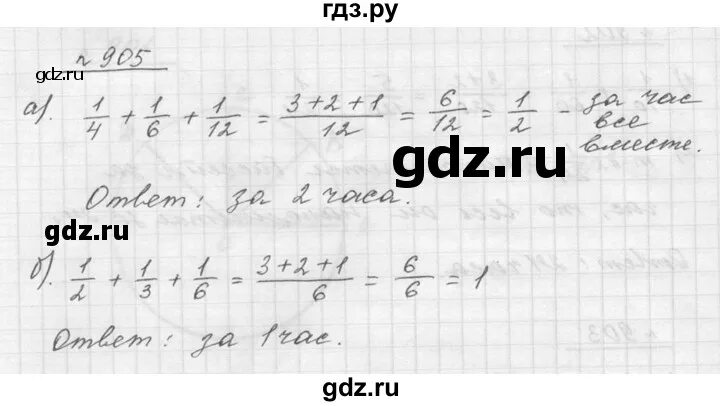 гдз.ру
№ 905
gdz.ru
а). 1/4 + 1/6 + 1/12 = (3+2+1)/12 = 6/12 = 1/2 - за час
все
вместе.
gdz.ru
Ответ: за 2 часа.
gdz.ru
б). 1/2 + 1/3 + 1/6 = (3+2+1)/6 = 6/6 = 1
Ответ: за 1 час.
gdz.ru
gdz.ru